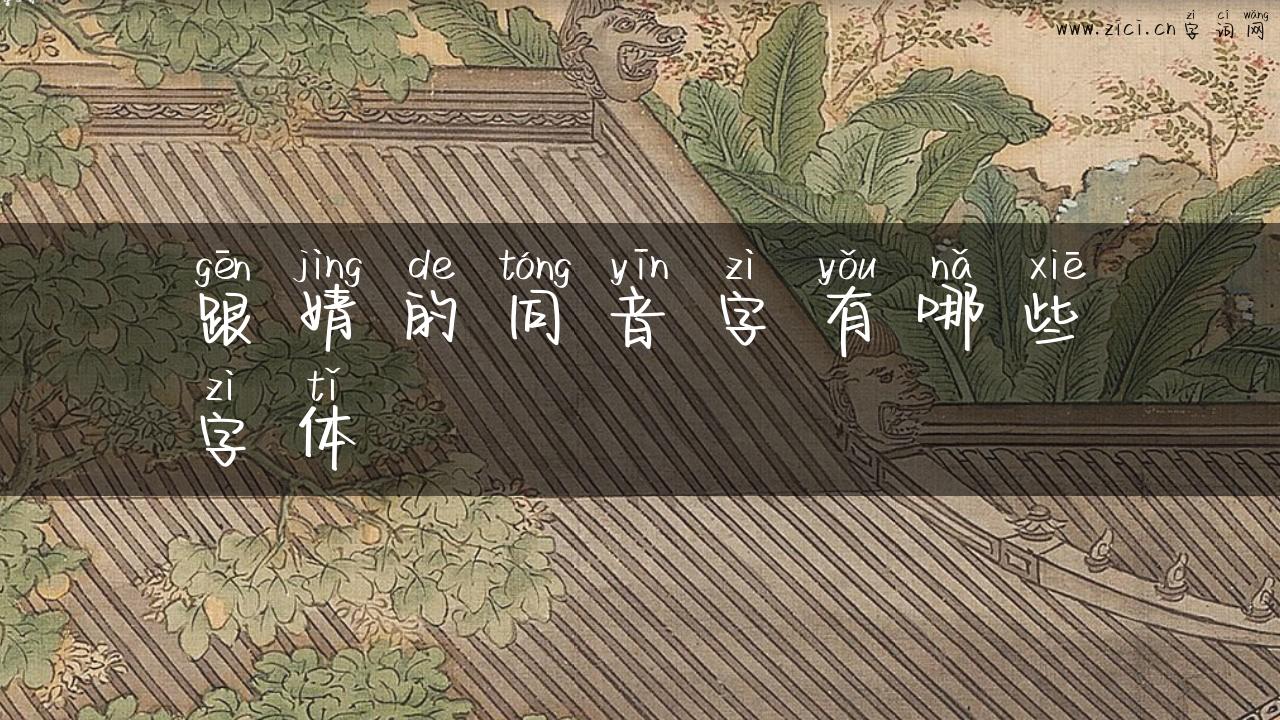 zì cí wǎng
www.zici.cn 字 词 网
gēn jìng de tóng yīn zì yǒu nǎ xiē
跟 婧 的 同 音 字 有 哪 些
zì tǐ
字 体